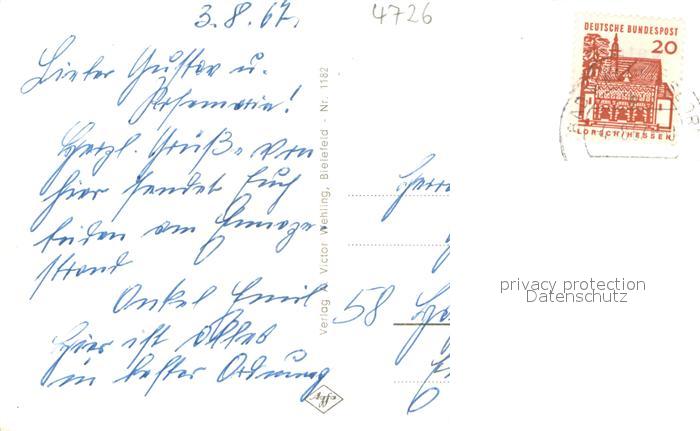 3.8.67.
4726
Lieber Gustav u.
Rosemarie!
Herzl. Grüße von
hier sendet Euch
beiden am
strand
Onkel Emil
Hier ist alles
in bester Ordnung
Verlag Victor Wehling, Bielefeld - Nr. 1182
DEUTSCHE BUNDESPOST
20
LORSCH/HESSEN
Herrn
58
6
privacy protection
Datenschutz